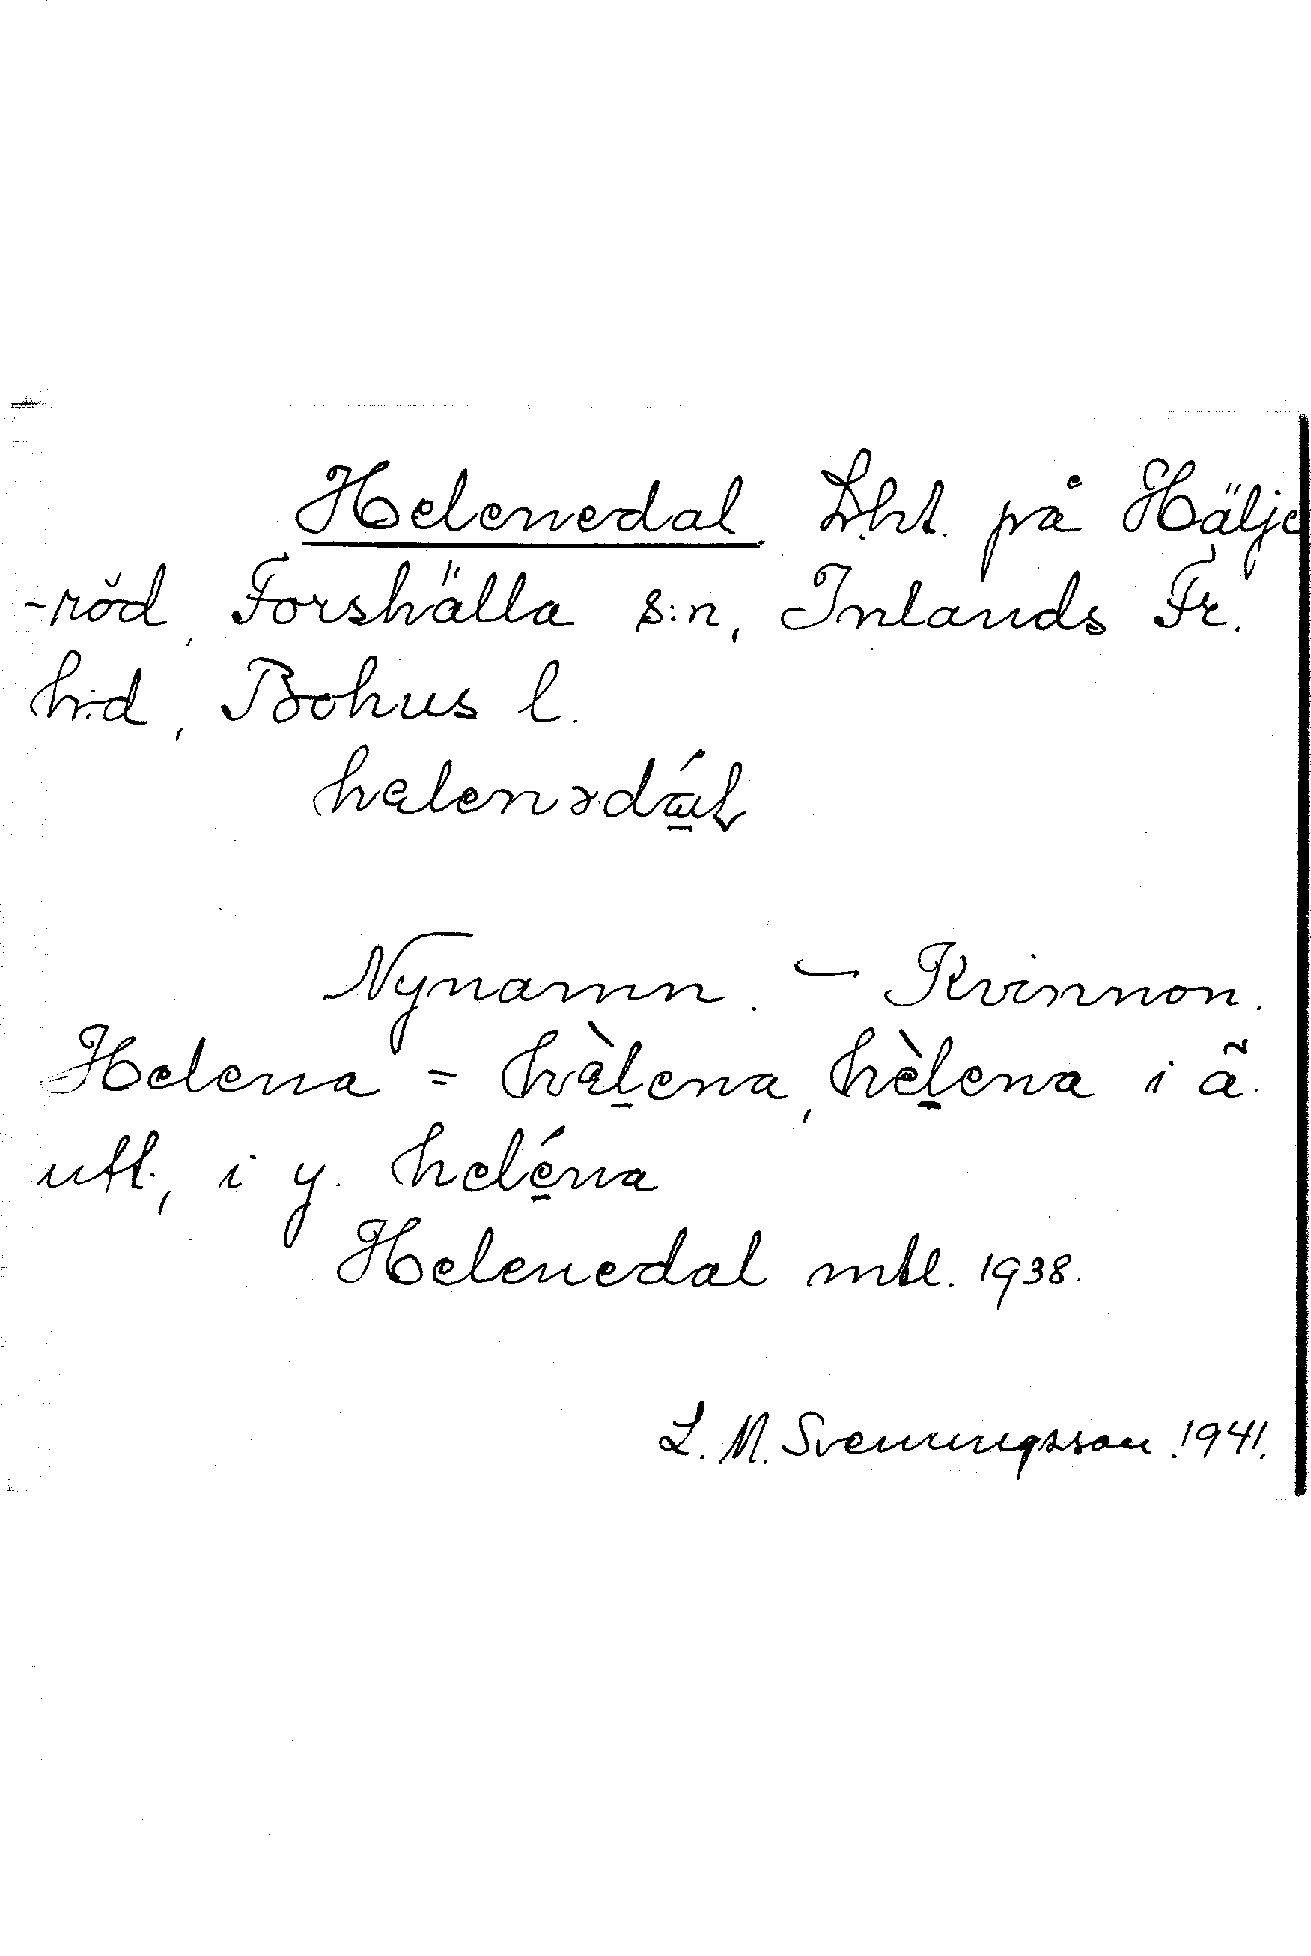 Helenedal Lht. på Hälje
-röd, Forshälla s:n, Inlands Fr.
h:d, Bohus l.
helenədáɫ
Nynamn. – Kvinnon.
Helena = hèlena, hèlena i ä.
utt., i y. heléna
Helenedal mtl. 1938.
L. M. Svenungsson 1941.